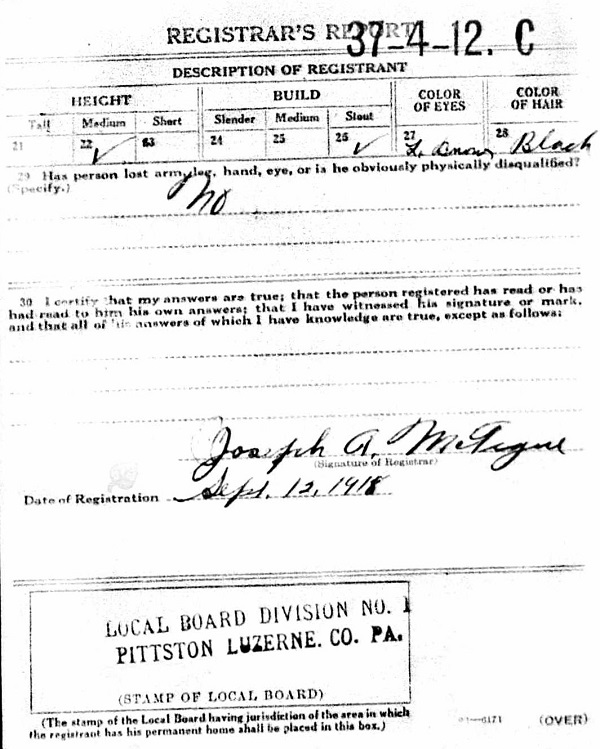 REGISTRAR'S REPORT
37-4-12. C
DESCRIPTION OF REGISTRANT
HEIGHT BUILD COLOR OF EYES COLOR OF HAIR
Tall Medium Short Slender Medium Stout
21 22 ✓ 23 24 25 26 ✓ 27 L. Brown 28 Black
29 Has person lost arm, leg, hand, eye, or is he obviously physically disqualified?
(Specify.) No
30 I certify that my answers are true; that the person registered has read or has
had read to him his own answers; that I have witnessed his signature or mark,
and that all of his answers of which I have knowledge are true, except as follows:
Joseph A. McTigue
(Signature of Registrar)
Date of Registration Sept. 12, 1918
LOCAL BOARD DIVISION NO. 1
PITTSTON LUZERNE. CO. PA.
(STAMP OF LOCAL BOARD)
(The stamp of the Local Board having jurisdiction of the area in which
the registrant has his permanent home shall be placed in this box.)
6171 (OVER)